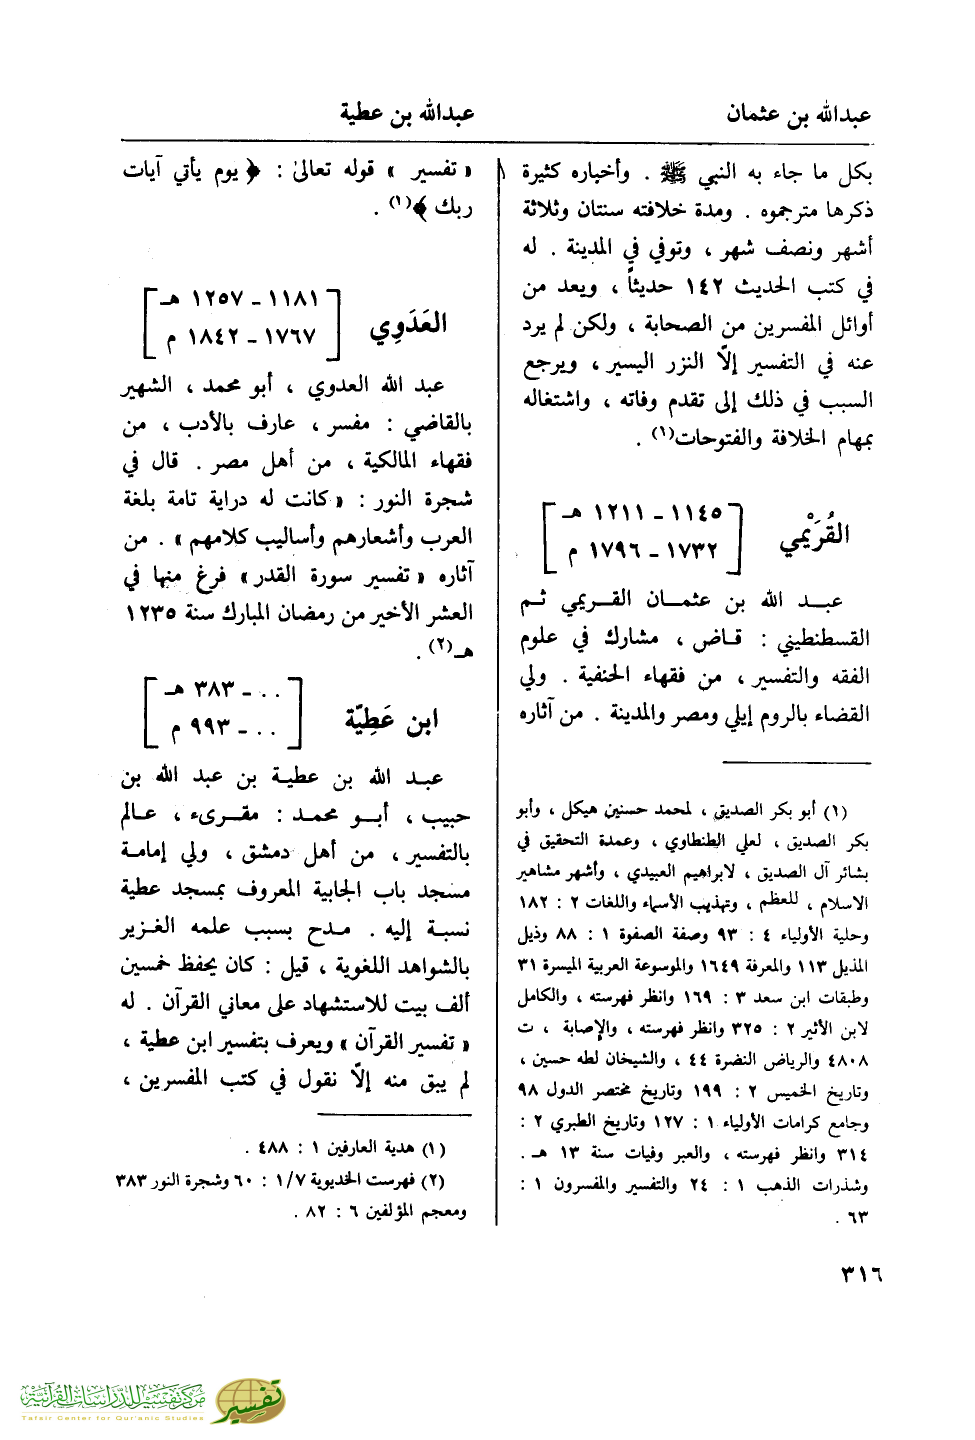 عبدالله بن عثمان
عبدالله بن عطية
بكل ما جاء به النبي ﷺ . وأخباره كثيرة
ذكرها مترجموه . ومدة خلافته سنتان وثلاثة
أشهر ونصف شهر ، وتوفي في المدينة . له
في كتب الحديث ١٤٢ حديثاً ، ويعد من
أوائل المفسرين من الصحابة ، ولكن لم يرد
عنه في التفسير إلّا النزر اليسير ، ويرجع
السبب في ذلك إلى تقدم وفاته ، واشتغاله
بمهام الخلافة والفتوحات(١) .
القُرَيْمي
[ ١١٤٥ - ١٢١١ هـ
١٧٣٢ - ١٧٩٦ م ]
عبـد الله بن عثمـان القـريمي ثـم
القسطنطيني : قـاض ، مشارك في علوم
الفقه والتفسير ، من فقهاء الحنفية . ولي
القضاء بالروم إيلي ومصر والمدينة . من آثاره
(١) أبو بكر الصديق ، لمحمد حسنين هيكل ، وأبو
بكر الصديق ، لعلي الطنطاوي ، وعمدة التحقيق في
بشائر آل الصديق ، لابراهيم العبيدي ، وأشهر مشاهير
الاسلام ، للعظم ، وتهذيب الأسماء واللغات ٢ : ١٨٢
وحلية الأولياء ٤ : ٩٣ وصفة الصفوة ١ : ٨٨ وذيل
المذيل ١١٣ والمعرفة ١٦٤٩ والموسوعة العربية الميسرة ٣١
وطبقات ابن سعد ٣ : ١٦٩ وانظر فهرسته ، والكامل
لابن الأثير ٢ : ٣٢٥ وانظر فهرسته ، والإصابة ، ت
٤٨٠٨ والرياض النضرة ٤٤ ، والشيخان لطه حسين ،
وتاريخ الخميس ٢ : ١٩٩ وتاريخ مختصر الدول ٩٨
وجامع كرامات الأولياء ١ : ١٢٧ وتاريخ الطبري ٢ :
٣١٤ وانظر فهرسته ، والعبر وفيات سنة ١٣ هـ .
وشذرات الذهب ١ : ٢٤ والتفسير والمفسرون ١ :
٦٣ .
« تفسير » قوله تعالىٰ : ﴿ يوم يأتي آيات
ربك ﴾(١) .
العَدَوِي
[ ١١٨١ - ١٢٥٧ هـ
١٧٦٧ - ١٨٤٢ م ]
عبد الله العدوي ، أبو محمد ، الشهير
بالقاضي : مفسر ، عارف بالأدب ، من
فقهاء المالكية ، من أهل مصر . قال في
شجرة النور : « كانت له دراية تامة بلغة
العرب وأشعارهم وأساليب كلامهم » . من
آثاره « تفسير سورة القدر » فرغ منها في
العشر الأخير من رمضان المبارك سنة ١٢٣٥
هـ(٢) .
ابن عَطِيّة
[ .. - ٣٨٣ هـ
.. - ٩٩٣ م ]
عبـد الله بن عطيـة بن عبد الله بن
حبيب ، أبـو محمد : مقـرىء ، عـالم
بالتفسير ، من أهل دمشق ، ولي إمامـة
مسجد باب الجابية المعروف بمسجد عطية
نسبـة إليه . مـدح بسبب علمه الغـزير
بالشواهد اللغوية ، قيل : كان يحفظ خمسين
ألف بيت للاستشهاد على معاني القرآن . له
« تفسير القرآن » ويعرف بتفسير ابن عطية ،
لم يبق منه إلّا نقول في كتب المفسرين ،
(١) هدية العارفين ١ : ٤٨٨ .
(٢) فهرست الخديوية ١/٧ : ٦٠ وشجرة النور ٣٨٣
ومعجم المؤلفين ٦ : ٨٢ .
٣١٦
مركز تفسير للدراسات القرآنية
Tafsir Center for Qur'anic Studies
تفسير